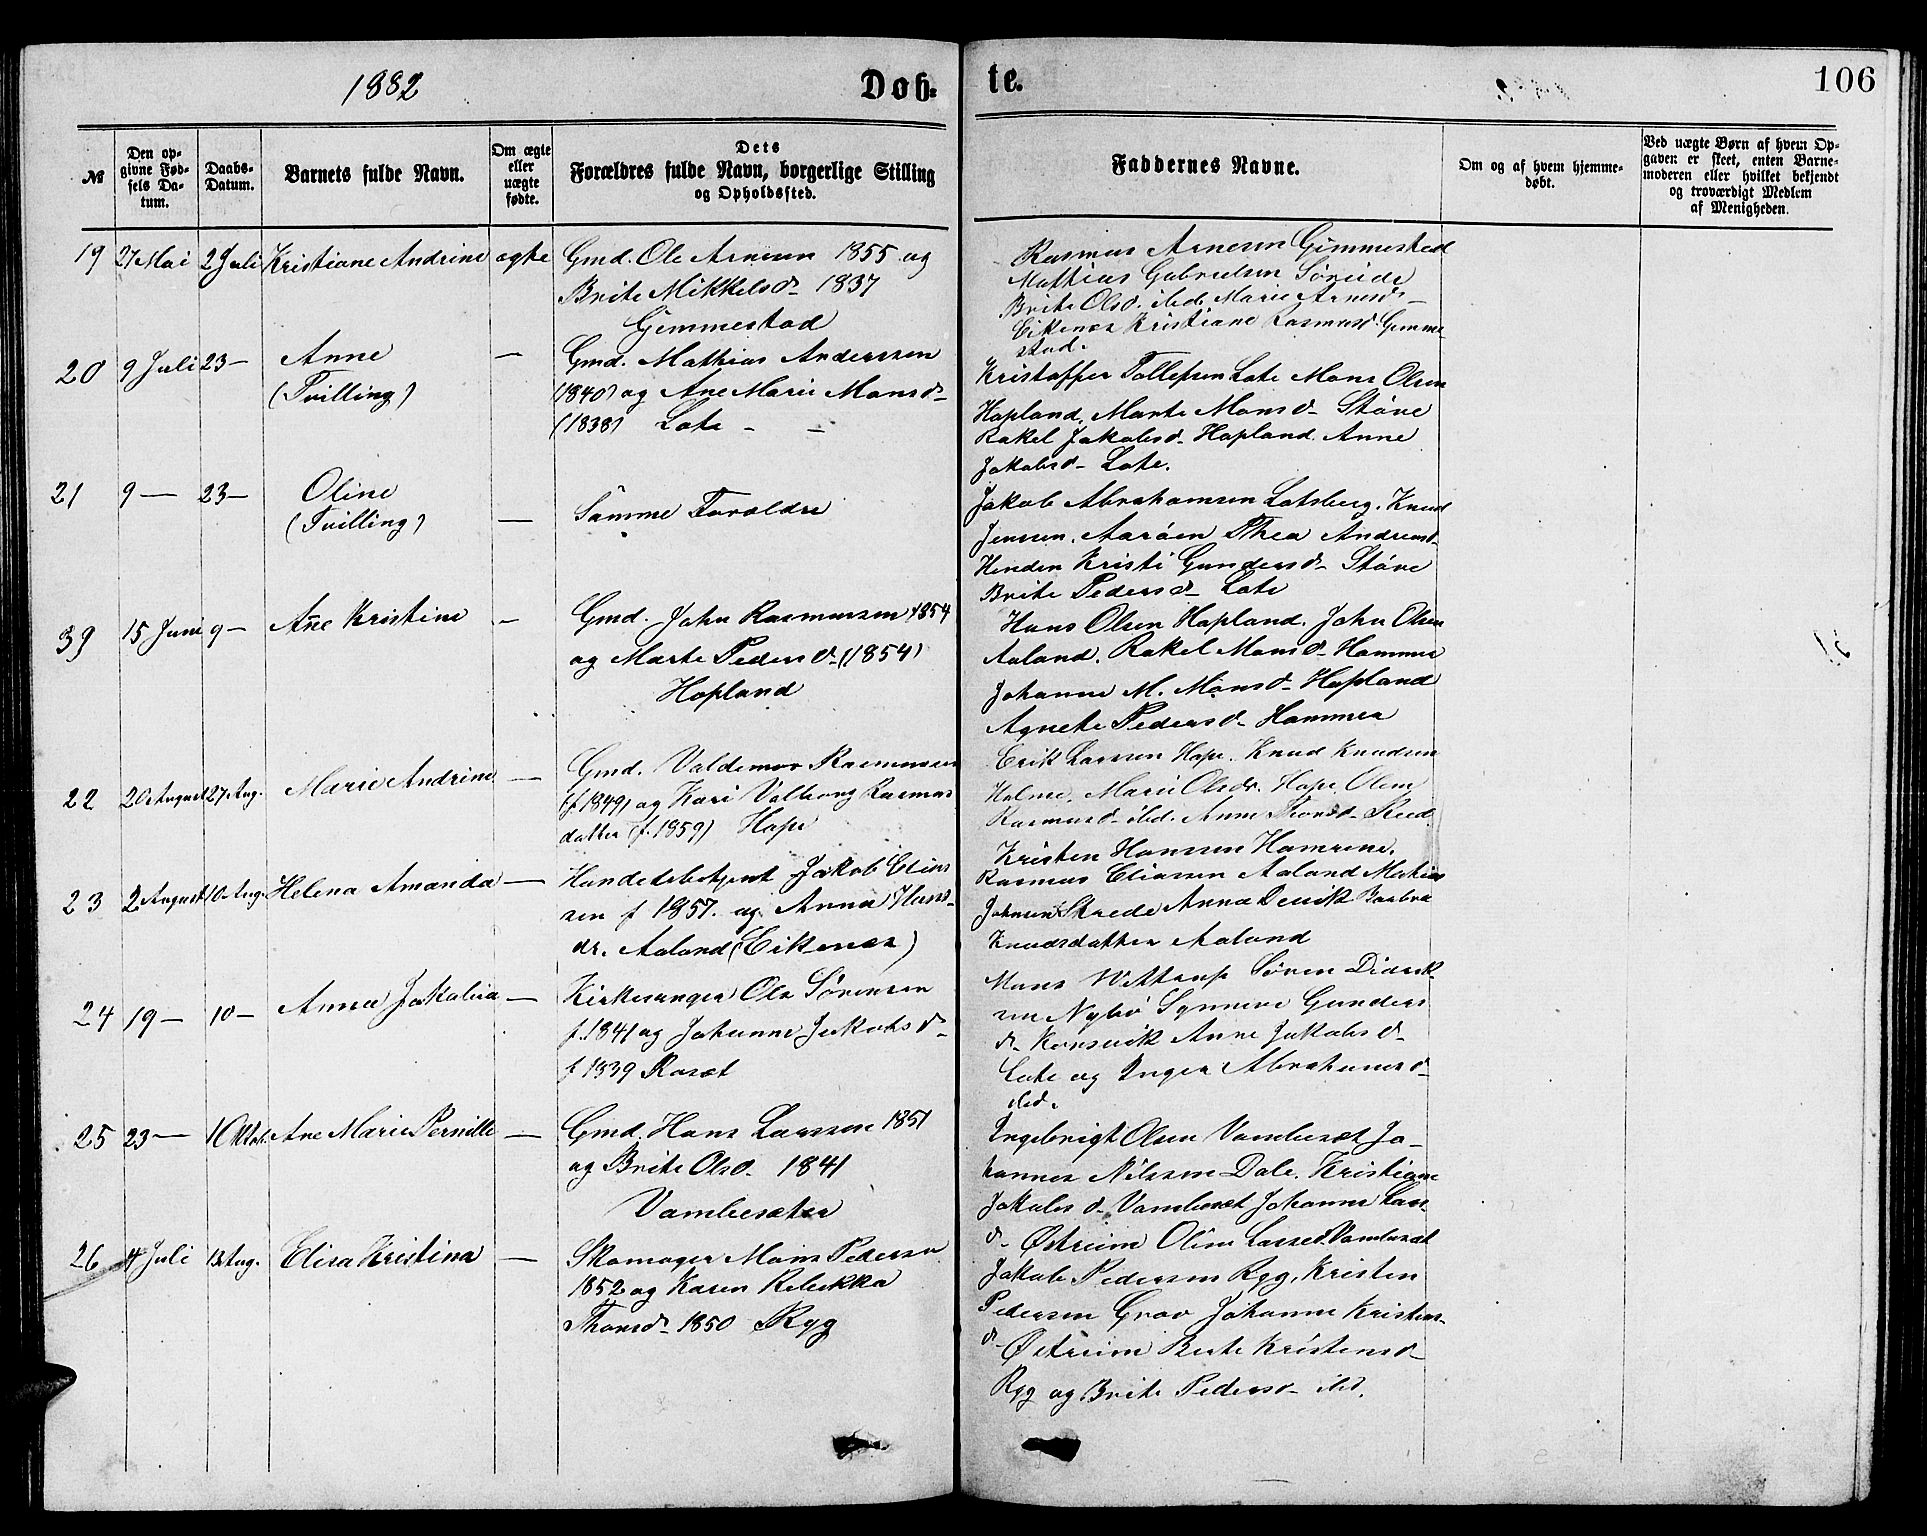 1882
Døb-
te.
106
№
Den op-
givne Fød-
sels Da-
tum.
Daabs-
Datum.
Barnets fulde Navn.
Om ægte
eller
uægte
fødte.
Dets
Forældres fulde Navn, borgerlige Stilling
og Opholdssted.
Faddernes Navne.
Om og af hvem hjemme-
døbt.
Ved uægte Børn af hvem Op-
gaven er skeet, enten Barne-
moderen eller hvilket bekjendt
og troværdigt Medlem
af Menigheden.
19 27 Mai 2 Juli Kristiane Andrine ægte
Gmd. Ole Arnesen 1855 og
Brite Mikkelsd- 1837
Gjemmestad
Rasmus Arnesen Gimmestad
Mathias Gabrielsen Søreide
Brite Olsd. ibd. Marie Arnesd-
Eikenes Kristiane Rasmusd. Gemme
stad.
20 9 Juli 23- Anne
(Tvilling)
—
Gmd. Mathias Anderssen
(1840) og Ane Marie Monsd-
(1838) Lote - -
Kristoffer Tollefsen Lote Mons Olsen
Hopland. Marte Monsd- Støve
Rakel Jakobsd- Hopland. Anne
Jakobsd- Lote.
21 9 — 23- Oline
(Tvilling)
—
Samme Forældre
Jakob Abrahamsen Lotsberg. Knud
Jenssen. Aarøen Thea Andreasd-
Henden Kristi Gundersd- Støve
Brite Pedersd- Lote
39 15 Juni 9- Ane Kristine -
Gmd. John Rasmussen 1854
og Marte Pedersd- (1854)
Hopland
Hans Olsen Hopland. John Olsen
Aaland. Rakel Monsd- Hammer
Johanne M. Monsd- Hopland
Agnete Pedersd- Hammer
22 20 August 27 Aug. Marie Andrine —
Gmd. Valdemar Rasmussen
(f. 1849) og Kari Valborg Rasmus
datter (f. 1859) Hope
Erik Larssen Hope. Knud Knudsen
Holme. Marie Olsdr. Hope. Oline
Rasmusd- ibd. Anne Thomsd- Reed
23 2 August 10 Aug. Helena Amanda —
Handelsbetjent Jakob Elias
sen f 1857. og Anna Hans-
dr. Aaland (Eikenes)
Kristen Hanssen Hamrene.
Rasmus Eliassen Aaland Mathias
Johnsen Skrede Anna Devik Barbra
Knudsdatter Aaland
24 19 - 10 - Anna Jakobia —
Kirkesanger Ole Sørensen
f. 1841 og Johanne Jakobsd-
f 1839 Roset
Mons Wittrup Søren Didrik-
sen Nybø Synneve Gunders
d- Kvnsvik Anne Jakobsd-
Lote og Inger Abrahamsd-
ibd.
25 23 — 1 Oktob. Ane Marie Pernille —
Gmd. Hans Larssen 1851
og Brite Olsd- 1841
Vambesæter
Ingebrigt Olsen Vambesæt Jo-
hannes Nilssen Dale. Kristiane
Jakobsd- Vambesæt Johanne Lars
d- Østreim Oline Larsed. Vambesæt
26 4 Juli 13 Aug. Elisa Kristina —
Skomager Mons Pedersen
1852 og Karen Rebekka
Thomsd- 1850 Ryg
Jakob Pedersen Ryg. Kristen
Pedersen Grov Johanne Kristens-
d- Østreim Berte Kristensd-
Ryg og Brite Pedersd- ibd.